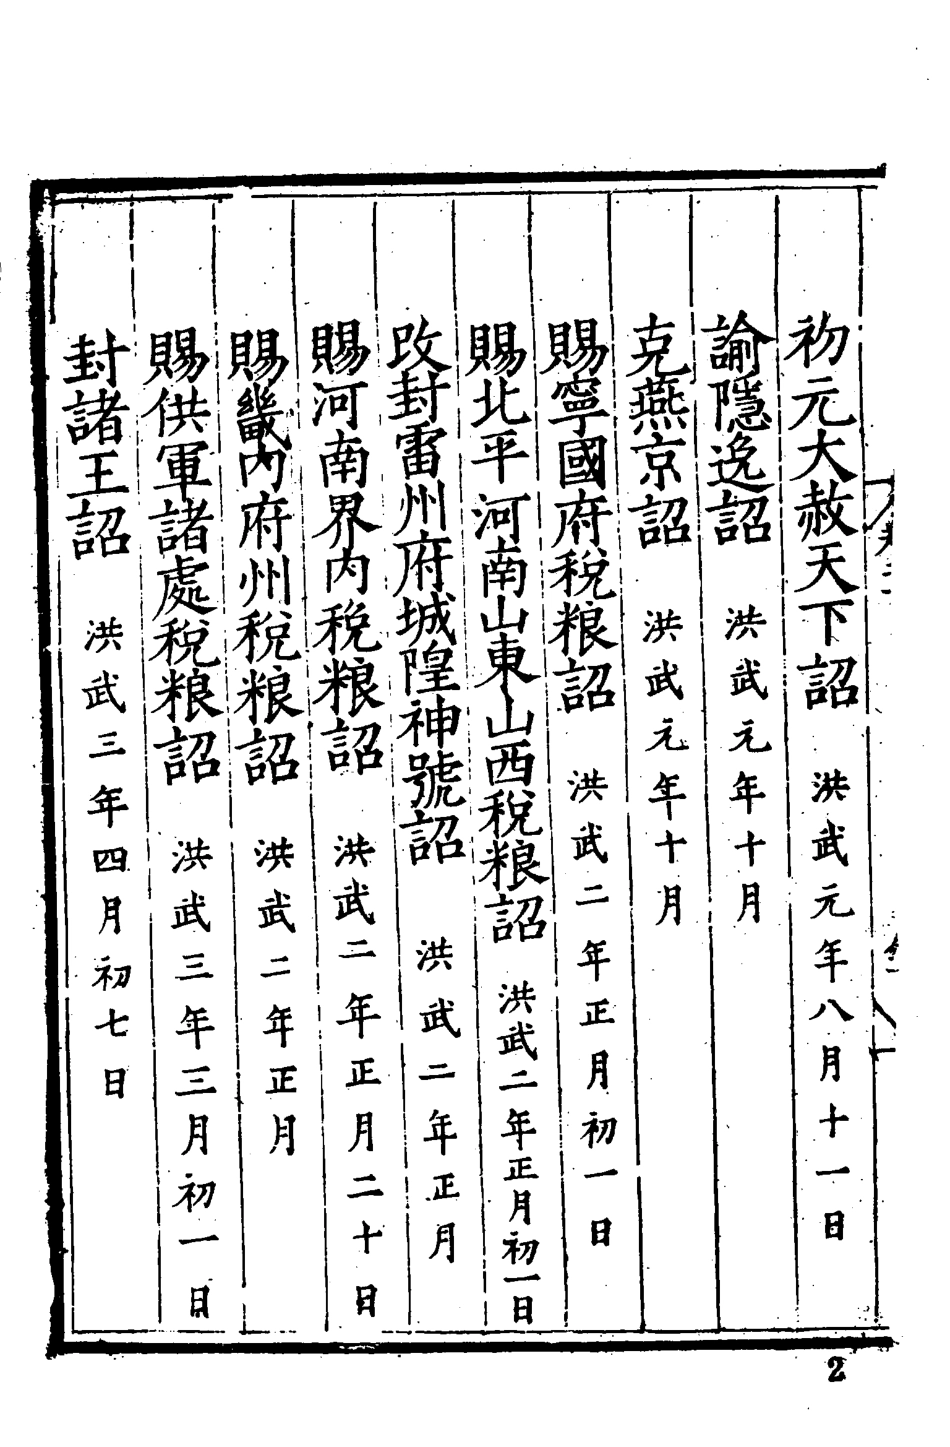 初元大赦天下詔 洪武元年八月十一日
諭隱逸詔 洪武元年十月
克燕京詔 洪武元年十月
賜寧國府稅粮詔 洪武二年正月初一日
賜北平河南山東山西稅粮詔 洪武二年正月初一日
改封雷州府城隍神號詔 洪武二年正月
賜河南界内稅粮詔 洪武二年正月二十日
賜畿内府州稅粮詔 洪武二年正月
賜供軍諸處稅粮詔 洪武三年三月初一日
封諸王詔 洪武三年四月初七日
2